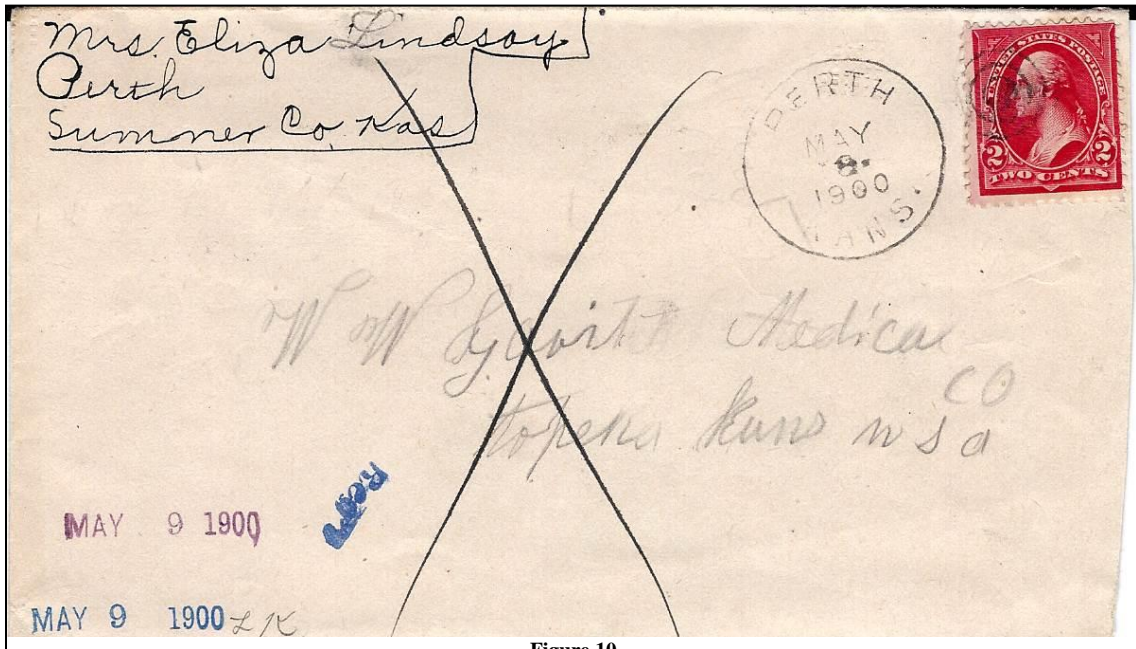 Mrs. Eliza Lindsay
Perth
Sumner Co. Kas
PERTH
MAY
8
1900
KANS.
UNITED STATES POSTAGE
2 2
TWO CENTS
W W Medical
CO
Topeka Kans U S a
MAY 9 1900
MAY 9 1900 L K
Figure 10